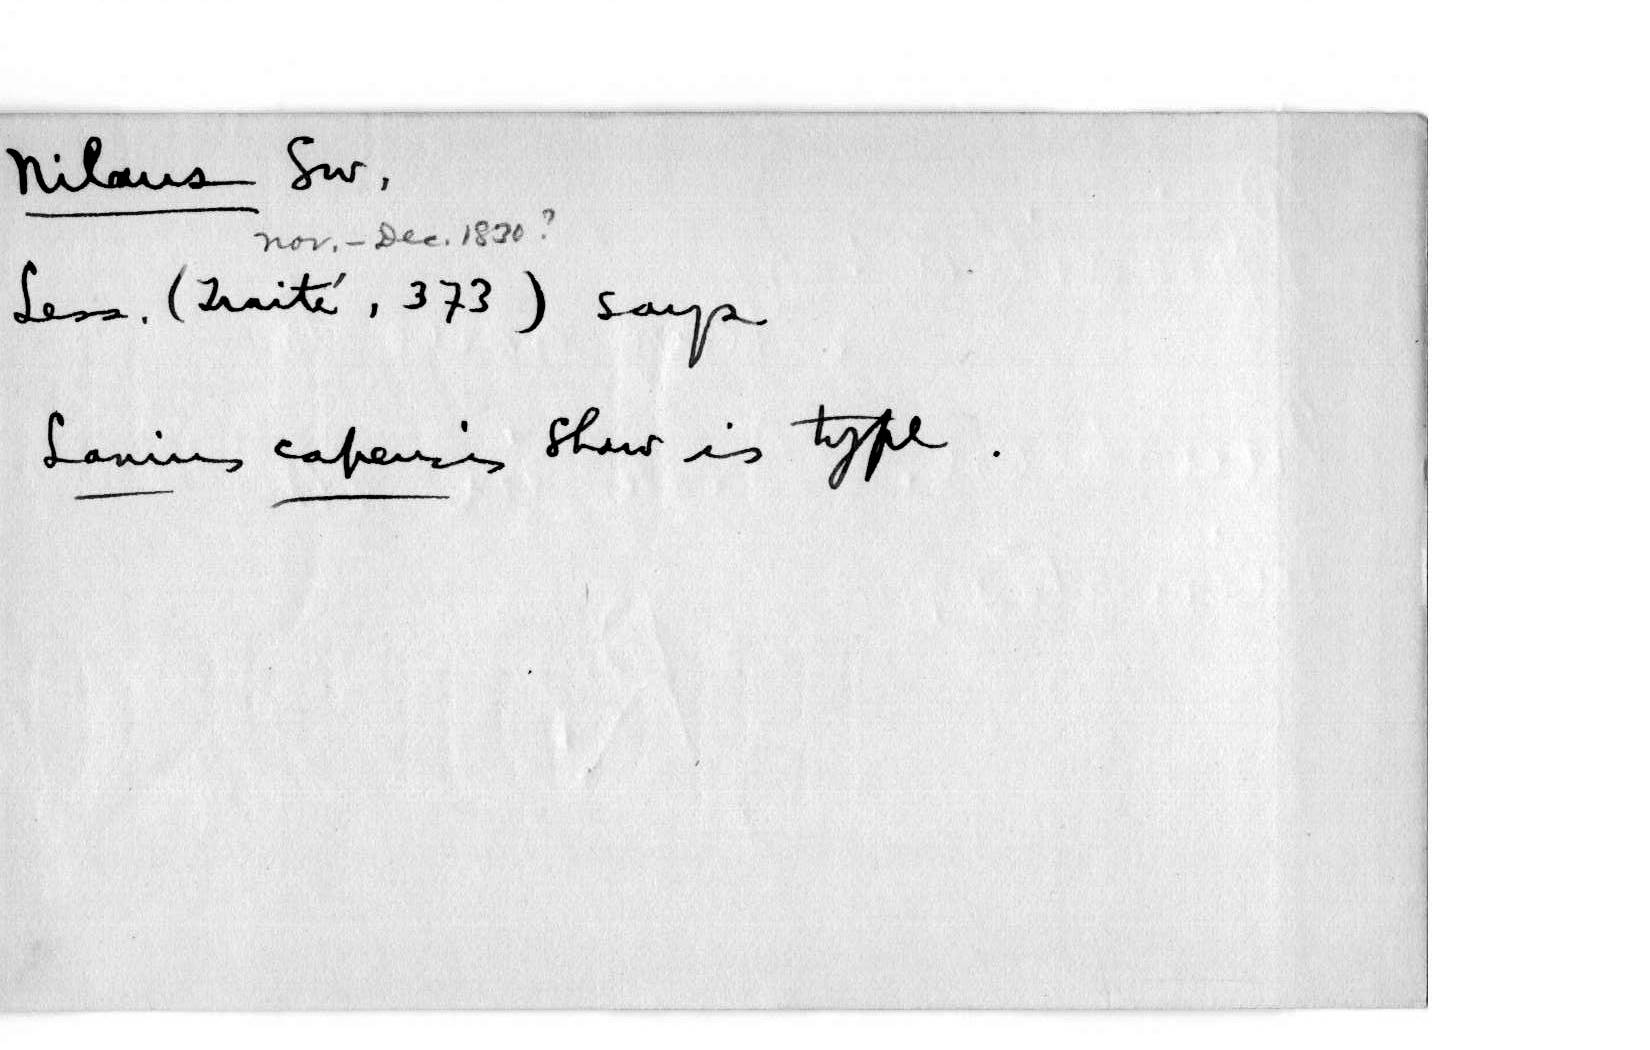 Nilaus Sw.
Nov. – Dec. 1830?
Less. (Traité, 373) says
Lanius capensis Shaw is type.